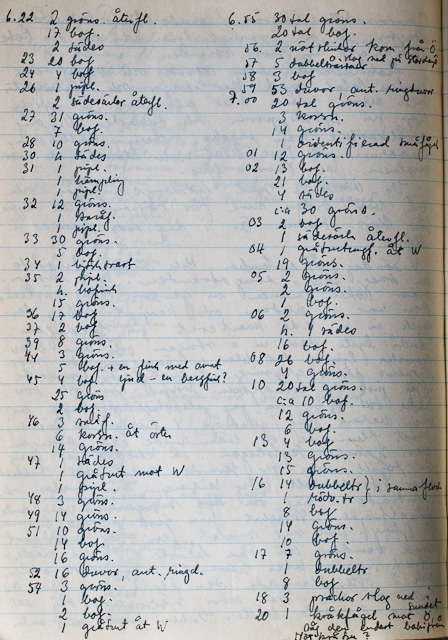 6.22 2 gröns. återfl.
17 bof.
2 sädes
23 20 bof
24 4 bof
26 1 pipl.
2 sädesärlor återfl.
27 31 gröns.
7 bof.
28 10 gröns.
30 h. sädes
31 1 pipl.
1 hämpling
1 pipl.
32 12 gröns.
1
1 pipl.
33 30 gröns.
5 bof.
34 1
35 2 pipl.
h. bofink
15 gröns.
36 17 bof
37 2 bof
39 8 gröns.
44 3 gröns.
5 bof. + en fink med annat
45 4 bof ljud - en bergfink?
25 gröns
2 bof.
46 3 småf.
6 korsn. åt öster
14 gröns.
47 1 sädes
1 gråsiska mot W
1 pipl.
48 3 gröns.
49 14 gröns.
51 10 gröns.
14 bof.
16 gröns.
52 16 duvor, ant. ringd.
54 3 gröns.
1 bof.
2 bof.
1 åt W
6.55 30 tal gröns.
20 tal bof.
56. 2 kom från Ö
57 5 dubbeltrastar slog ned på
58 3 bof
59 53 duvor, ant. ringduvor
7.00 20 tal gröns.
3 korsn.
14 gröns.
1 oidentifierad småfågel
01 12 gröns.
02 13 bof.
21 bof.
4 sädes
c:a 30 gröns.
03 2 bof.
1 sädesärla återfl.
04 1 åt W
19 gröns.
05 2 gröns.
2 gröns.
1 bof
06 2 gröns.
h. 4 sädes
16 bof.
08 26 bof.
4 gröns.
10 20 tal gröns.
c:a 10 bof.
12 gröns.
6 bof.
13 4 bof
13 gröns.
15 gröns.
16 14 dubbeltr } i samma flock
1 rödv.tr
8 bof
14 gröns.
10 bof.
17 7 gröns.
1 dubbeltr
8 bof
18 3 slog ned i
20 1 kråkfågel mot Ö,
såg den endast bakifrån